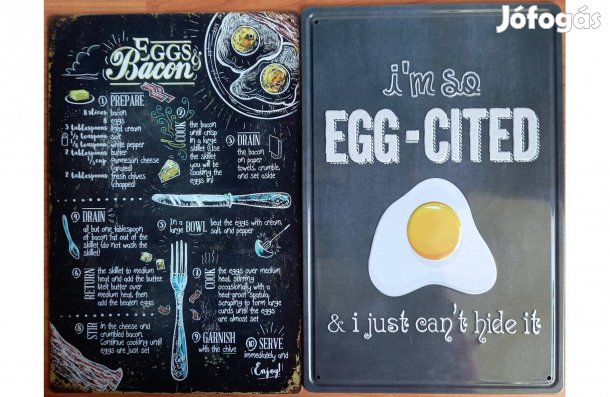 Jófogás
EGGS &
Bacon
① PREPARE
8 slices bacon
8 eggs
3 tablespoons light cream
½ teaspoon salt
¼ teaspoon white pepper
2 tablespoons butter
½ cup Parmesan cheese
(grated)
2 tablespoons fresh chives
(chopped)
② COOK
the bacon
until crisp
in a large
skillet (Use
the skillet
you will be
cooking the
eggs in)
③ DRAIN
the bacon
on paper
towels, crumble,
and set aside
④ DRAIN
all but one tablespoon
of bacon fat out of the
skillet (do not wash the
skillet)
⑤ In a large BOWL beat the eggs with cream,
salt, and pepper
⑥ RETURN
the skillet to medium
heat and add the butter.
Melt butter over
medium heat, then
add the beaten eggs
⑦ COOK
the eggs over medium
heat, stirring
occasionally with a
heat-proof spatula,
scraping to form large
curds until the eggs
are almost set
⑧ STIR
in the cheese and
crumbled bacon.
Continue cooking until
eggs are just set
⑨ GARNISH
with the chive
⑩ SERVE
immediately and
(Enjoy!)
i'm so
EGG-CITED
& i just can't hide it